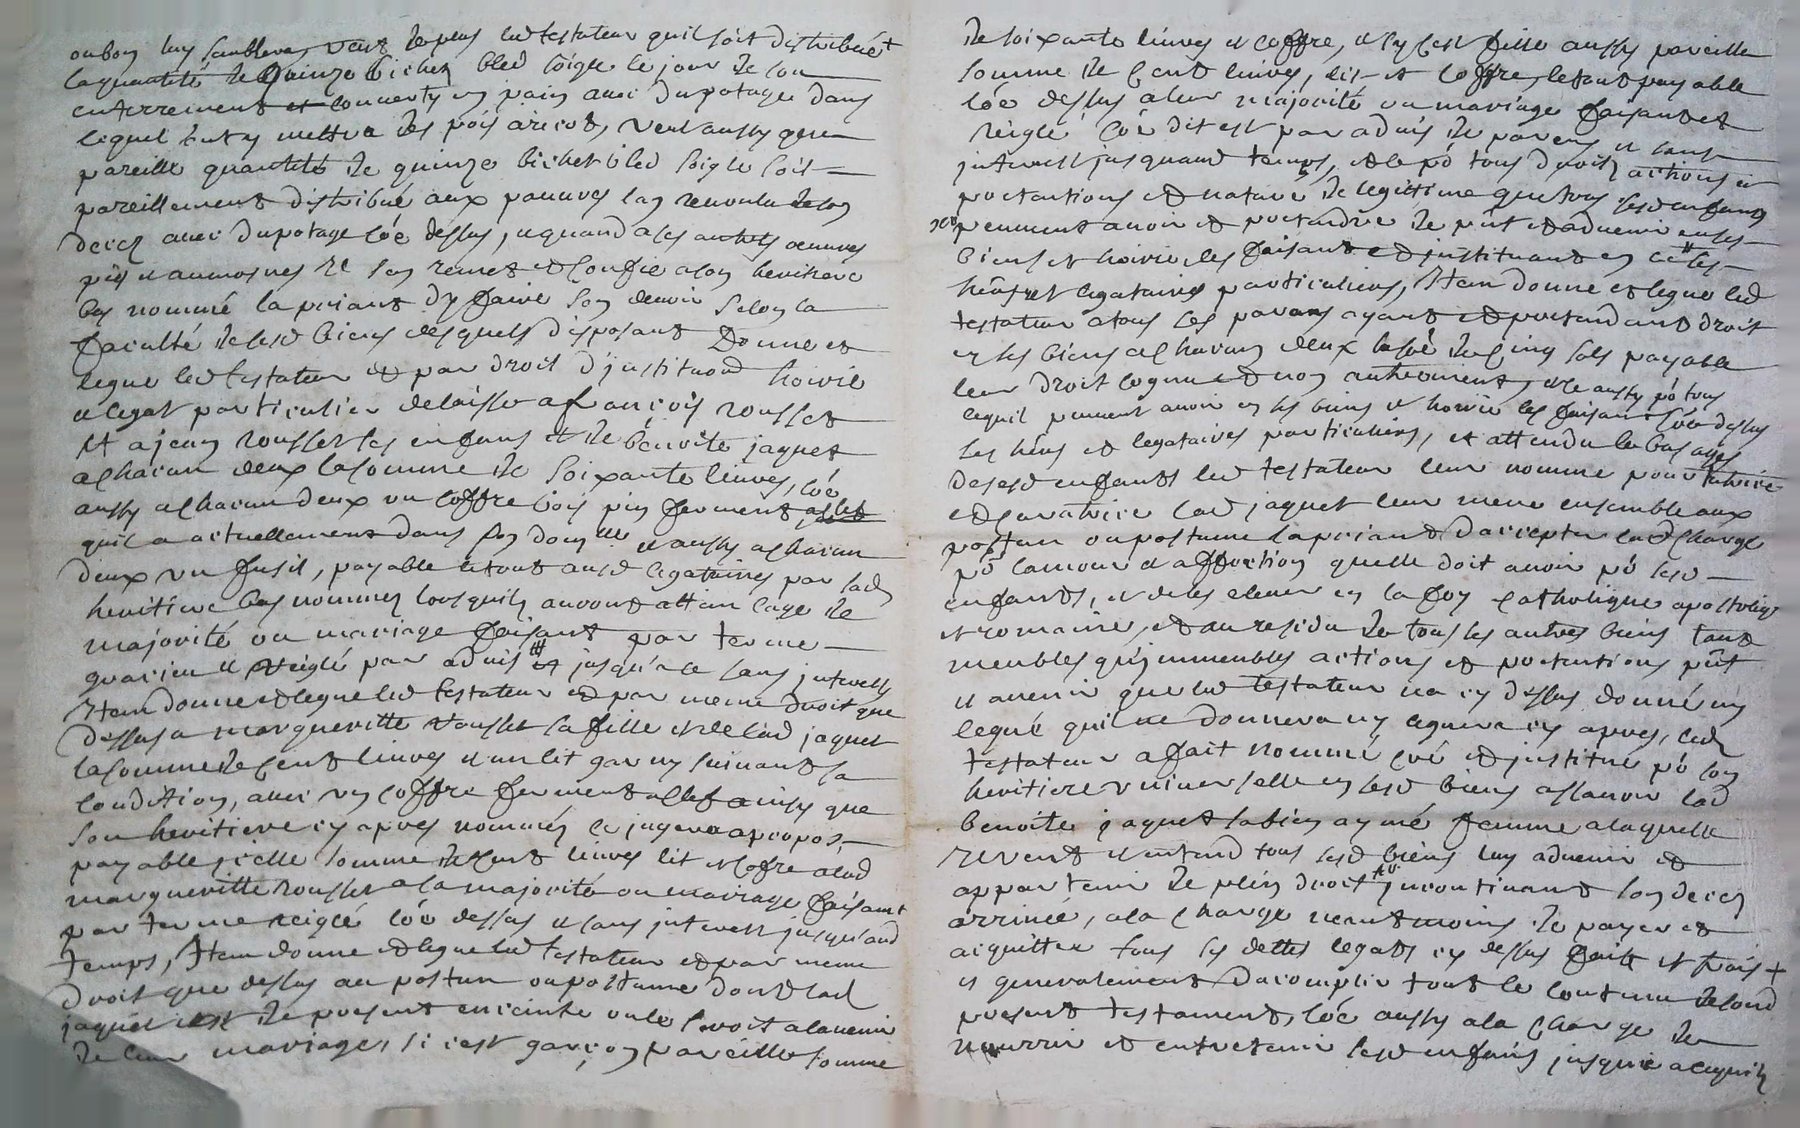 ou bon luy semblera, veut de plus led testateur quil soit distribué
la quantité de quinze bichez bled soigle le jour de son
enterrement et converty en pain avec du potage dans
lequel lon y mettra des pois aricots, veut aussy que
pareille quantité de quinze bichet bled soigle soit
pareillement distribué aux pauvres lan revoulu de son
decez avec du potage coe dessus, et quand a ses autres oeuvres
pies et aumosnes il sen remet et confie a son heritiere
bas nommé la priant dy faire son devoir selon la
faculté de sesd biens desquels disposant donne et
legue led testateur et par droit d'institaon hoirie
et legat particulier delaisse a françois rousset
et a jean rousset ses enfans et de benoite jaquet
a chacun deux la somme de soixante livres, coe
aussy a chacun deux un coffre bois pin ferment a clef
quil a actuellement dans son dom lle et aussy a chacun
deux un fusil, payable le tout ausd legataires par sad
heritiere bas nommez lors quils auront attain lage de
majorité ou mariage faisant par terme
gracieu et reiglé par advis # et jusqua ce sans interests
Item donne et legue led testateur et par meme droit que
dessus a margueritte rousset sa fille et de lad jaquet
la somme de cent livres et un lit garny suivant sa
condition, avec un coffre ferment a clef ainsy que
son heritiere cy apres nommez le jugera apropos
payable icelle somme de cent livres lit et coffre alad
marguerite rousset a la majorité ou mariage faisant
par terme reiglé coe dessus et sans interest jusquaud
temps, Item donne et legue led testateur et par meme
droit que dessus au postum ou postume dont lad
jaquet est de present enceinte ou le seroit alavenir
de leur mariage, si cest garçon pareille somme
de soixante livres et coffre, et sy cest fille aussy pareille
somme de cent livres, lit et coffre, le tout payable
coe dessus a leur majorité ou mariage faisant et
reiglé coe dit est par advis de parens et sans
interest jusquaud temps, et ce pò tous droits actions et
pretentions et nature de legitime que tous sesd enfans
peuvent avoir et pretandre de pnt et advenir en ses
biens et hoirie les faisant et instituant en ce # ses
hérs et legataires particuliers, Item donne et legue led
testateur a tous ses parans ayant et pretandant droit
en ses biens a chacun deux la soe de cinq sols payable
leur droit cognu et non autrement, et ce aussy pò tous
lequil peuvent avoir en ses biens et hoirie les faisant coe dessus
ses hérs et legataires particuliers, et attendu le bas ages
de sesd enfants led testateur leur nomme pour tutrice
et curatrice lad jaquet leur mere ensemble aux
postum ou postume la priant d'accepter lad charge
pò lamour et affection quelle doit avoir pò sesd
enfants, et de les elever en la foy catholique apostoliqe
et romaine, et au residu de tous ses autres biens tant
meubles qu'immeubles actions et pretentions pñt
et avenir que led testateur na cy dessus donné ny
legué quil ne donnera ny leguera cy apres, led
testateur a fait nommé créé et institué pò son
heritiere universelle en sesd biens assavoir lad
benoite jaquet sa bien aymé femme a laquelle
il veut et entand tous sesd biens luy advenir et
appartenir de plein droit incontinant son decez
arrivée, a la charge neantmoins de payer et
acquitter tous ses dettes legats cy dessus fait et frais +
et generalement dacomplir tout le contenu de sond
present testament, coe aussy a la charge de
nourrir et entretenir sesd enfans jusque a ce quils